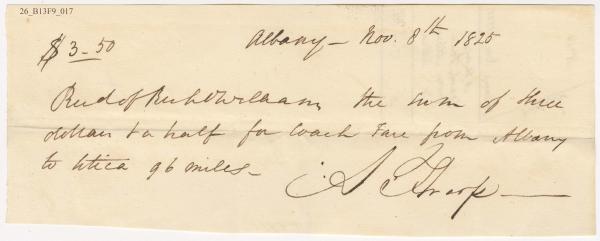 26_B13F9_017
$3-50
Albany - Nov. 8th 1825
Recd of the sum of three
dollars & a half for Coach Fare from Albany
to Utica 96 miles -